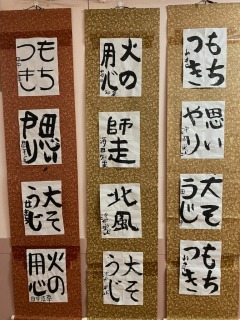 もち
つき
思い
やり
大そ
うじ
もち
つき
火の
用心
師走
北風
大そ
うじ
もち
つき
思い
やり
大そ
うじ
火の
用心